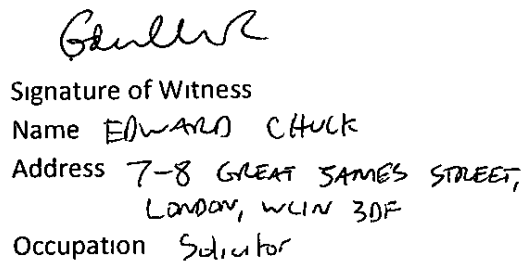 Signature of Witness
Name EDWARD CHUCK
Address 7-8 GREAT JAMES STREET,
LONDON, WC1N 3DF
Occupation Solicitor